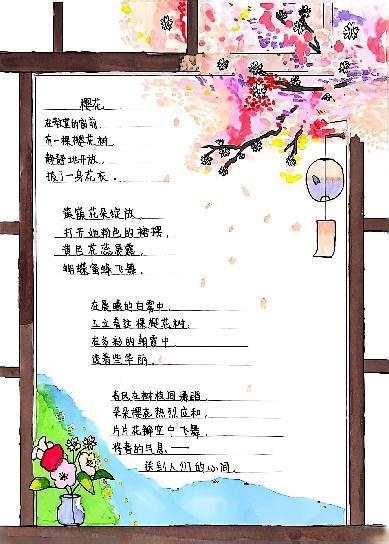 樱花
在教室的窗前,
有一棵樱花树
静静地开放,
披了一身花衣。
朵花朵绽放,
打开她粉色的裙摆,
花蕊晨露,
蝴蝶蜜蜂飞舞。
在晨曦的白雾中,
棵樱花树.
在多彩的朝霞中
透着些华丽.
春风在树枝间
朵朵樱花热烈应和,
片片花瓣空中飞舞.
将春的气息——
送到人们的心间.